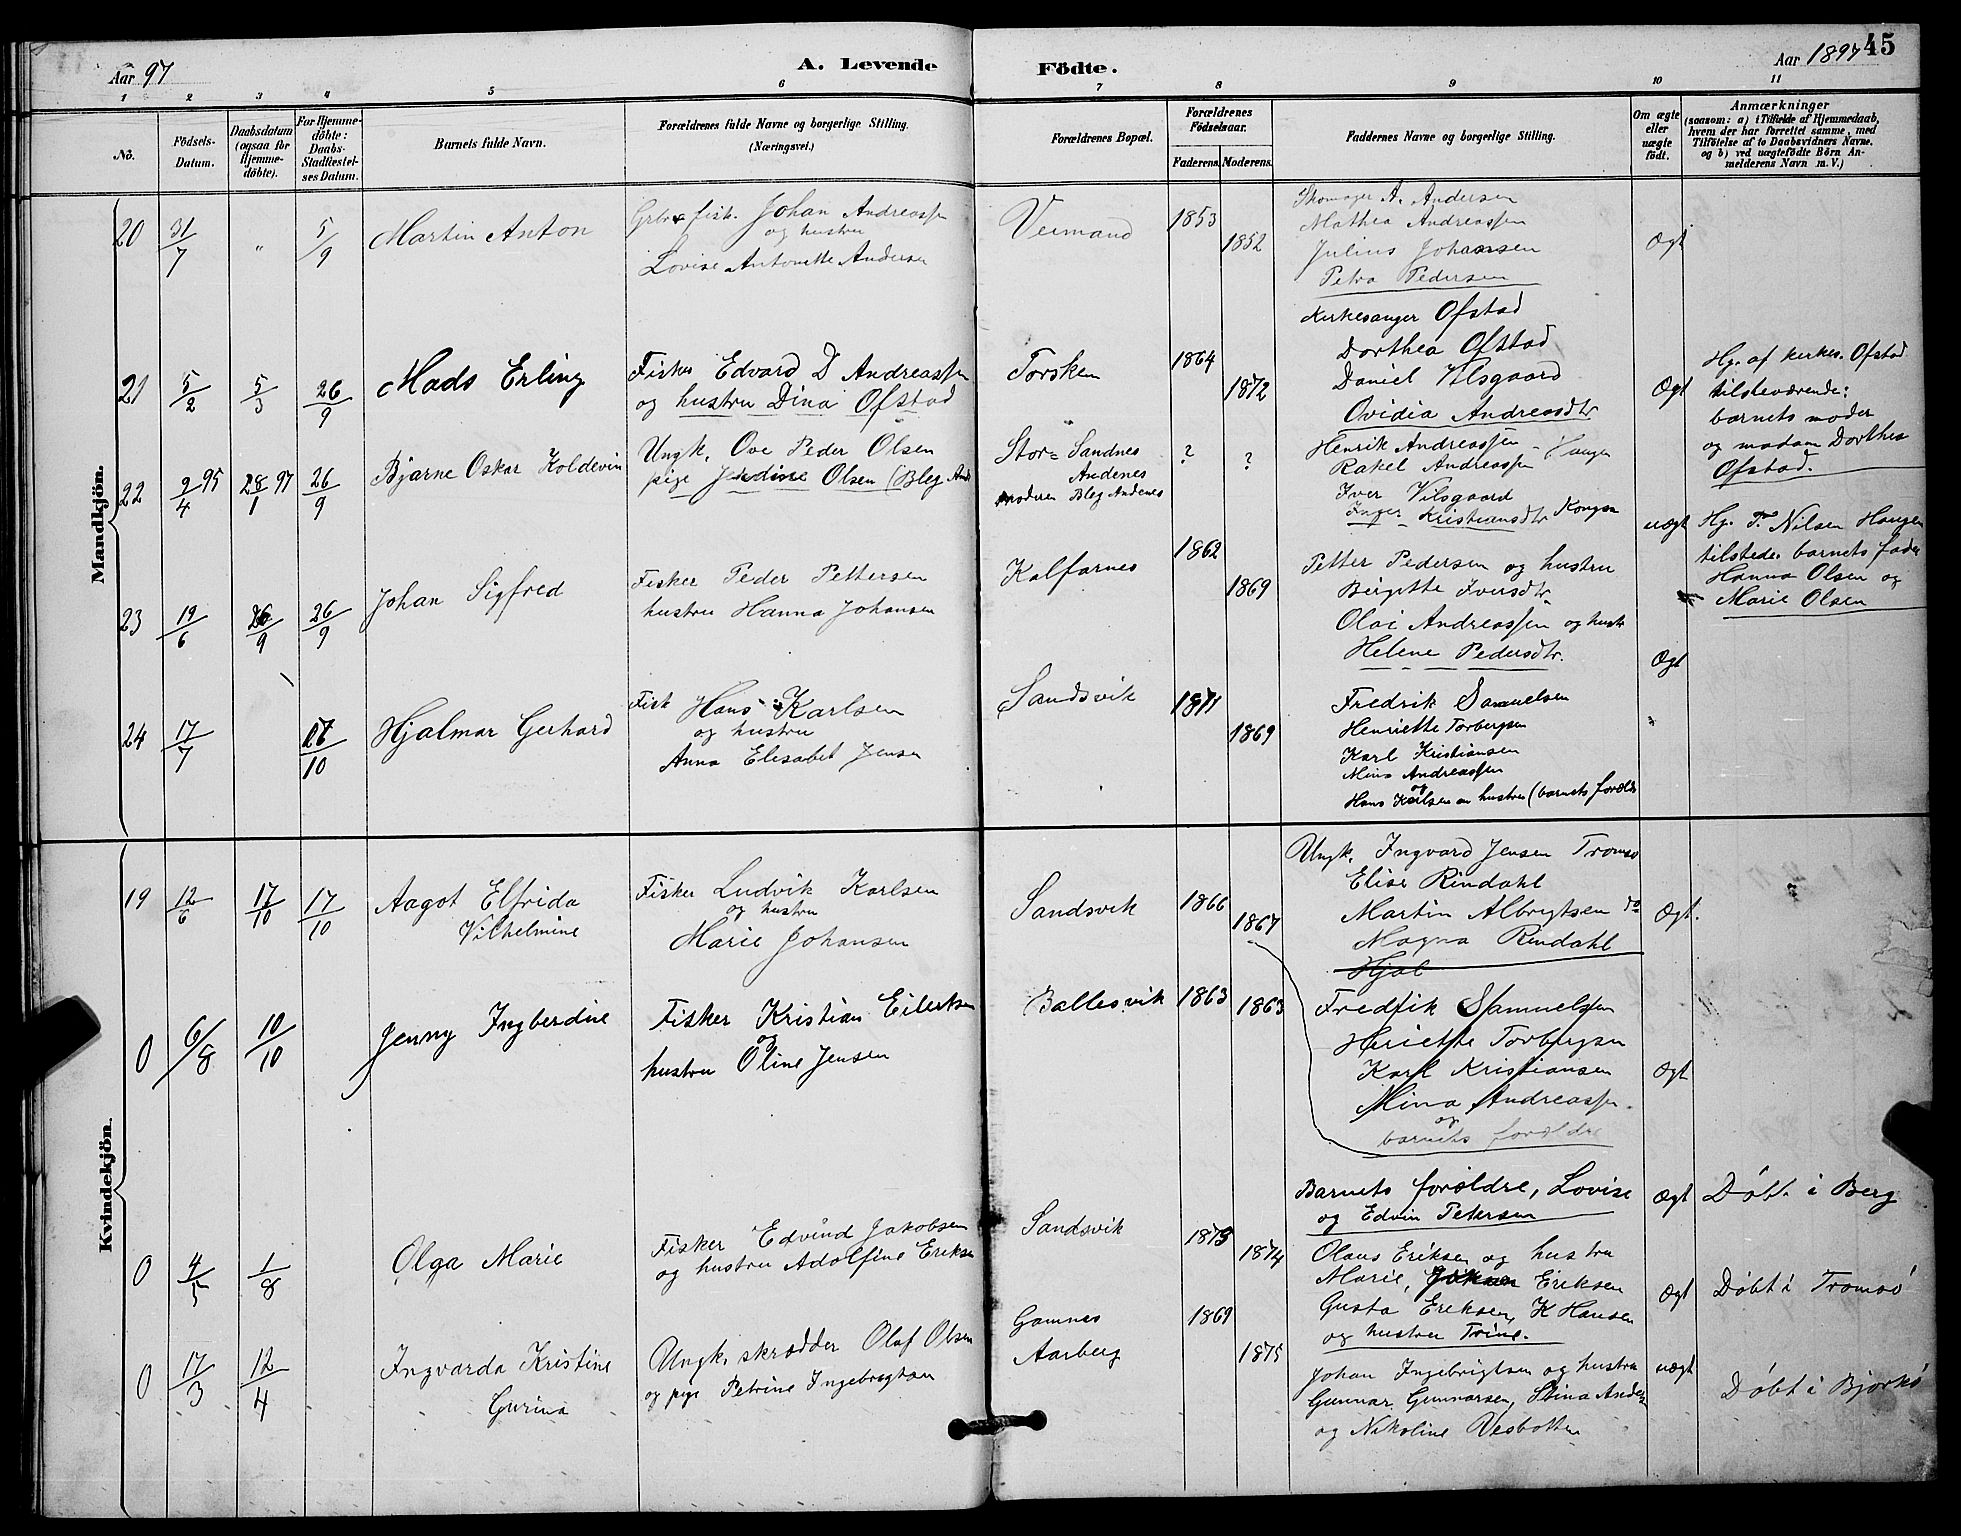 Aar 97
A. Levende
Födte.
Aar 1897 45
1 2 3 4 5 6 7 8 9 10 11
No.
Födsels-
Datum.
Daabsdatum
(ogsaa for
Hjemme-
döbte).
For Hjemme-
döbte:
Daabs-
Stadfæstel-
ses Datum.
Barnets fulde Navn.
Forældrenes fulde Navne og borgerlige Stilling.
(Næringsvei.)
Forældrenes Bopæl.
Forældrenes
Födselsaar.
Faderens. Moderens.
Faddernes Navne og borgerlige Stilling.
Om ægte
eller
uægte
födt.
Anmærkninger
(saasom: a) i Tilfælde af Hjemmedaab,
hvem der har forrettet samme, med
Tilföielse af to Daabsvidners Navne.
og b) ved uægtefödte Börn An-
melderens Navn m. V.)
Mandkjön.
20 31/7 " 5/9 Martin Anton
Johan Andreassen
og hustru
Lovise Antonette Andersen
1853
1852
A. Andersen
Mathea Andreassen
Julius Johansen
Petra Pedersen
Ægt
21 5/2 5/3 26/9 Mads Erling
Fisker Edvard D Andreassen
og hustru Dina Ofstad
Torsken
1864
1872
Kirkesanger Ofstad
Dorthea Ofstad
Daniel
Ovidia Andreasdtr
Ægt
Hg. af kirkes. Ofstad
tilsteværende:
barnets moder
og madam Dorthea
Ofstad.
22 9/4 95 28/1 97 26/9 Bjarne Oskar Koldevin
Ungk. Ove Peder Olsen
pige Olsen (Bleg
Stor- Sandnes
Andenes
moderen Bleg Andenes
? ?
Henrik Andreassen
Rakel Andreassen
Iver Vilsgaard
Inger Kristiansdtr
uægt
Hg. Nilsen Haugen
tilstede: barnets fader
Hanna Olsen og
Marie Olsen
23 19/6 26/9 26/9 Johan Sigfred
Fisker Peder Pettersen
hustru Hanna Johansen
Kalfarnes
1862
1869
Petter Pedersen og hustru
Birgitte Iversdtr
Olai Andreassen og hustr
Helene Pedersdtr.
Ægt
24 17/7 17/10 Hjalmar Gerhard
Fisk Hans Karlsen
og hustru
Anna Elisabet Jensen
Sandsvik
1871
1869
Fredrik Samuelsen
Henriette Torbergsen
Karl Kristiansen
Mina Andreassen
og
Hans Karlsen og hustru (barnets forældr
"
Kvindekjön.
19 12/6 17/10 17/10 Aagot Elfrida
Vilhelmine
Fisker Ludvik Karlsen
og hustru
Marie Johansen
Sandsvik
1866
1867
Ungk. Ingvard Jensen Tromsø
Elise Rindahl
Martin Albrigtsen do
Magna Rindahl
Hjal
Ægt.
0 6/8 10/10 Jenny Ingberdine
Fisker Kristian Eilertsen
og
hustru Oline Jensen
Ballesvik
1863
1863
Fredrik Samuelsen
Heriette Torbergsen
Karl Kristiansen
Mina Andreassen.
og
barnets forældre
Ægt
Barnets forældre, Lovise
og Edvin Petersen
Ægt Døbt i Berg
0 4/5 1/8 Olga Marie
Fisker Edvind Jakobsen
og hustru Adolfine Eriksen
Sandsvik
1873
1874
Olaus Eriksen og hustru
Marie, Eriksen
Gusta Eriksen, K Hansen
og hustru Trine.
Ægt Døbt i Tromsø
0 17/3 12/4 Ingvarda Kristine
Gurina
Ungk. skrædder Olaf Olsen
og pige Petrine Ingebrigtsen
Gamnes
Aarberg
1869
1875
Johan Ingebrigtsen og hustru
Gunnar Gunnarsen, Stina Anders
og Nikoline Vesbotten
uægt
Døbt i Bjarkø